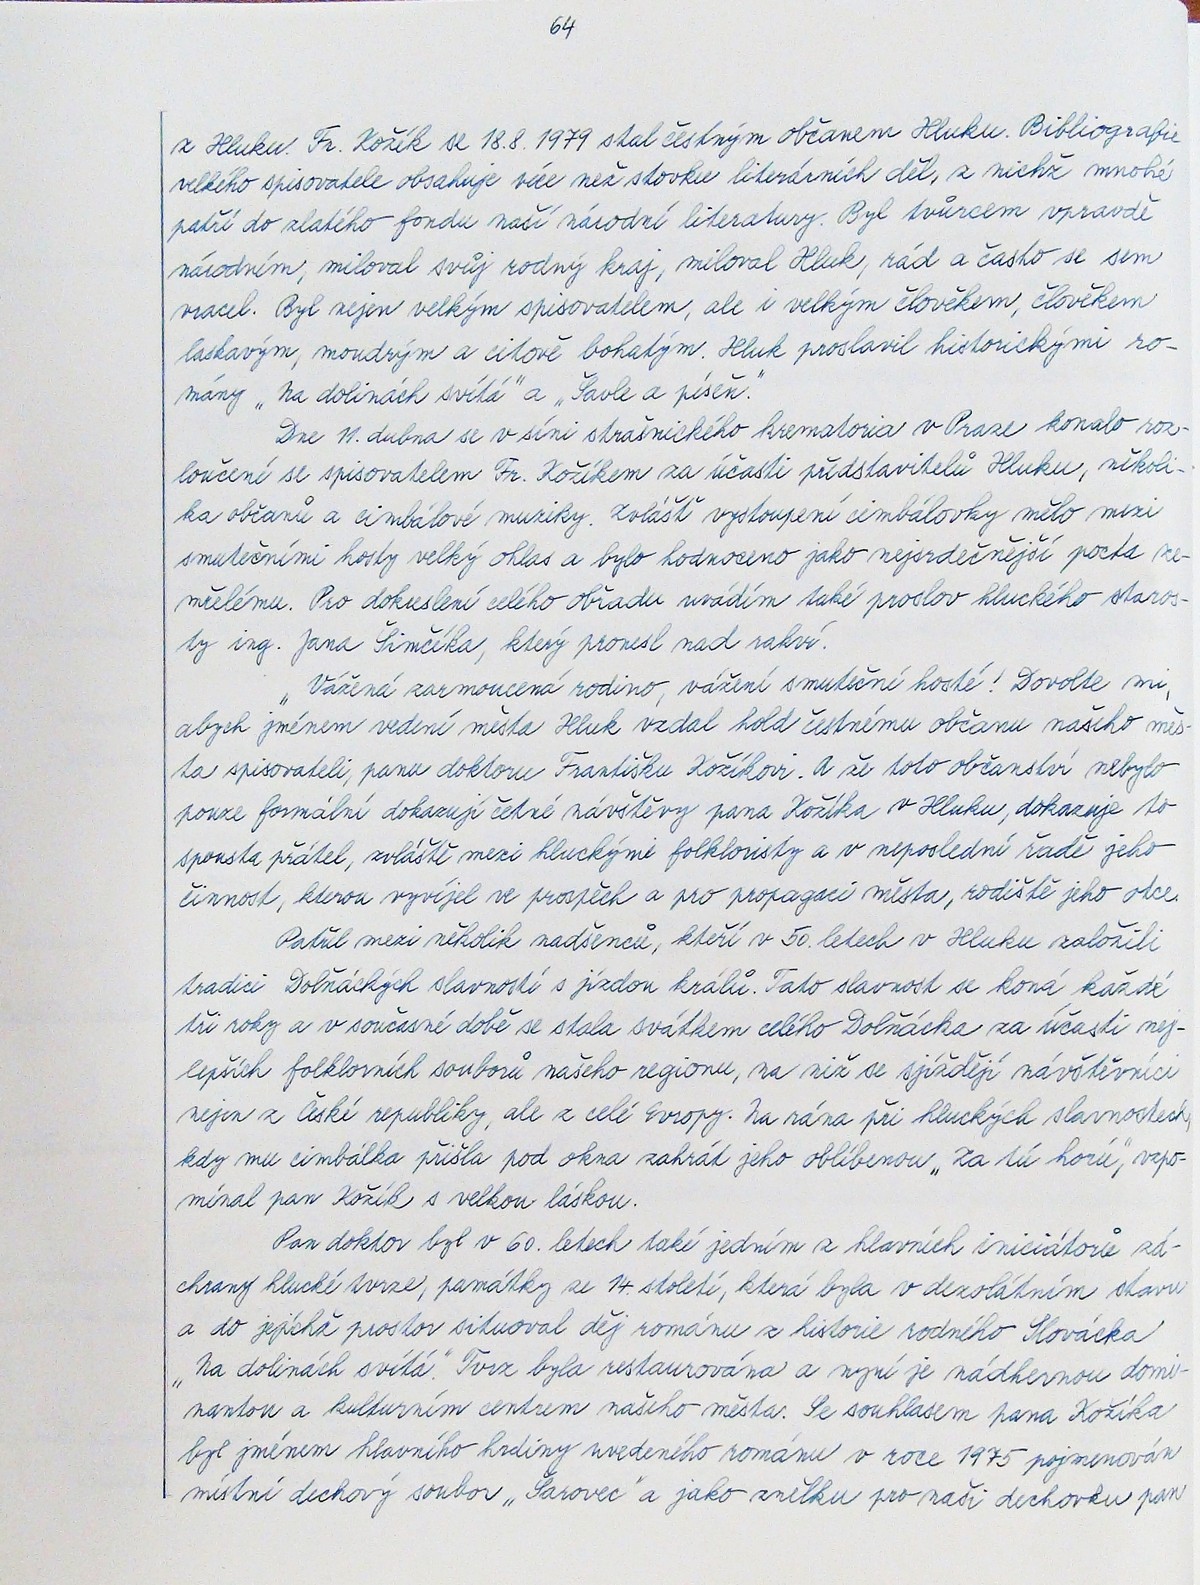 64
z Hluku. Fr. Kožík se 18.8. 1979 stal čestným občanem Hluku. Bibliografie
velkého spisovatele obsahuje více než stovku literárních děl, z nichž mnohé
patří do zlatého fondu naší národní literatury. Byl tvůrcem vpravdě
národním, miloval svůj rodný kraj, miloval Hluk, rád a často se sem
vracel. Byl nejen velkým spisovatelem, ale i velkým člověkem, člověkem
laskavým, moudrým a citově bohatým. Hluk proslavil historickými ro-
mány „Na dolinách svítá" a „Šavle a píseň."
Dne 11. dubna se v síni strašnického krematoria v Praze konalo roz-
loučení se spisovatelem Fr. Kožíkem za účasti představitelů Hluku, několi-
ka občanů a cimbálové muziky. Zvláště vystoupení cimbálovky mělo mezi
smutečními hosty velký ohlas a bylo hodnoceno jako nejsrdečnější pocta ze-
mřelému. Pro dokreslení celého obřadu uvádím také proslov hluckého staros-
ty ing. Jana Šimčíka, který pronesl nad rakví.
„Vážená zarmoucená rodino, vážení smuteční hosté! Dovolte mi,
abych jménem vedení města Hluk vzdal hold čestnému občanu našeho měs-
ta spisovateli, panu doktoru Františku Kožíkovi. A že toto občanství nebylo
pouze formální dokazují četné návštěvy pana Kožíka v Hluku, dokazuje to
spousta přátel, zvláště mezi hluckými folkloristy a v neposlední řadě jeho
činnost, kterou vyvíjel ve prospěch a pro propagaci města, rodiště jeho otce.
Patřil mezi několik nadšenců, kteří v 50. letech v Hluku založili
tradici Dolňáckých slavností s jízdou králů. Tato slavnost se koná každé
tři roky a v současné době se stala svátkem celého Dolňácka za účasti nej-
lepších folklorních souborů našeho regionu, na niž se sjíždějí návštěvníci
nejen z České republiky, ale z celé Evropy. Na rána při hluckých slavnostech,
kdy mu cimbálka přišla pod okna zahrát jeho oblíbenou „Za tú horú", vzpo-
mínal pan Kožík s velkou láskou.
Pan doktor byl v 60. letech také jedním z hlavních iniciátorů zá-
chrany hlucké tvrze, památky ze 14. století, která byla v dezolátním stavu
a do jejíchž prostor situoval děj románu z historie rodného Slovácka
„Na dolinách svítá." Tvrz byla restaurována a nyní je nádhernou domi-
nantou a kulturním centrem našeho města. Se souhlasem pana Kožíka
byl jménem hlavního hrdiny uvedeného románu v roce 1975 pojmenován
místní dechový soubor „Šarovec" a jako znělku pro naši dechovku pan